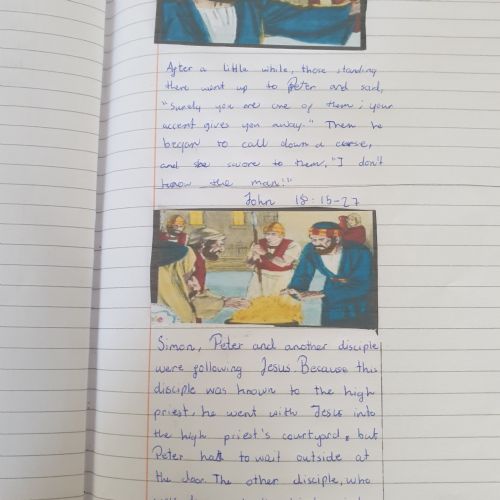 After a little while, those standing
there went up to Peter and said,
"Surely you are one of them; your
accent gives you away." Then he
began to call down a curse,
and she swore to them, "I don't
know the man!"
John 18:15-27
Simon, Peter and another disciple
were following Jesus. Because this
disciple was known to the high
priest, he went with Jesus into
the high priest's courtyard, but
Peter had to wait outside at
the door. The other disciple, who